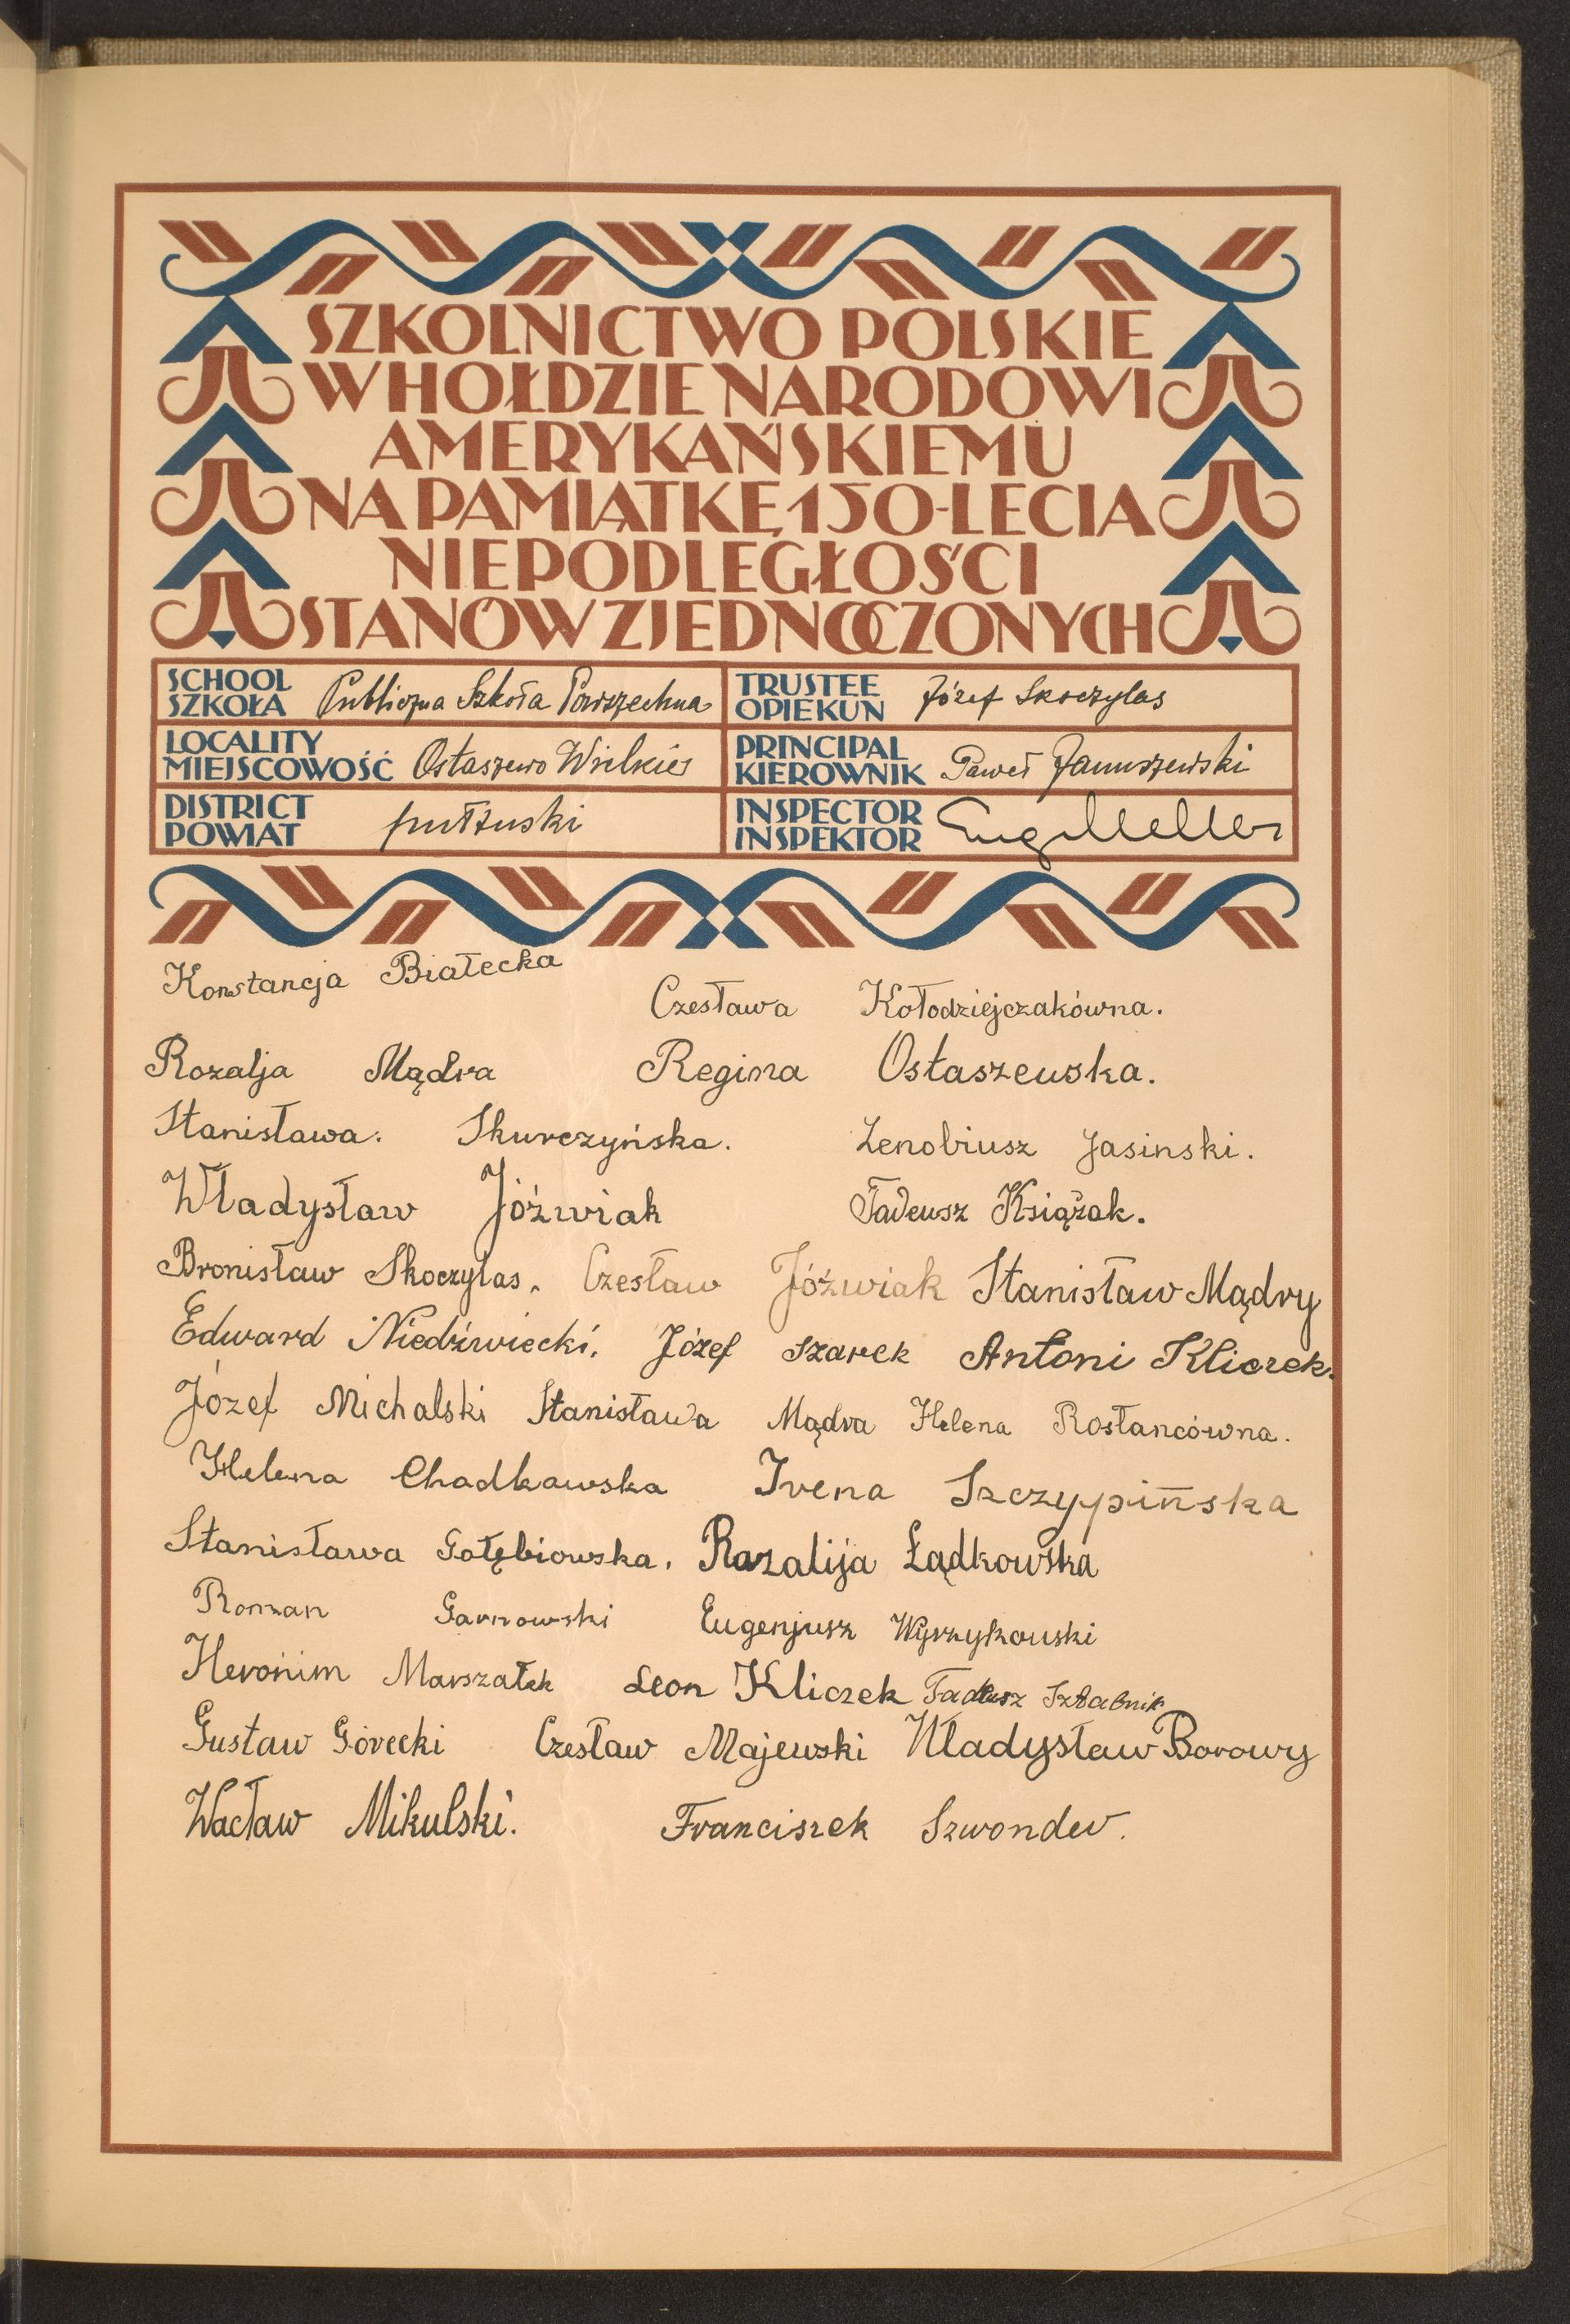 SZKOLNICTWO POLSKIE
W HOŁDZIE NARODOWI
AMERYKAŃSKIEMU
NA PAMIĄTKĘ 150-LECIA
NIEPODLEGŁOŚCI
STANÓW ZJEDNOCZONYCH
SCHOOL
SZKOŁA Publiczna Szkoła Powszechna
TRUSTEE
OPIEKUN Józef Skoczylas
LOCALITY
MIEJSCOWOŚĆ Ostaszewo Wielkie
PRINCIPAL
KIEROWNIK Paweł Januszewski
DISTRICT
POWIAT pułtuski
INSPECTOR
INSPEKTOR
Konstancja Białecka Czesława Kołodziejczakówna.
Rozalja Mądra Regina Ostaszewska.
Stanisława. Skurczyńska. Zenobiusz Jasinski.
Władysław Jóźwiak Tadeusz Książak.
Bronisław Skoczylas. Czesław Jóźwiak Stanisław Mądry
Edward Niedźwiecki. Józef Szarek Antoni Kliczek.
Józef Michalski Stanisława Mądra Helena Rosłancówna.
Helena Chadkawska Irena Szczypińska
Stanisława Gołębiowska. Razalija Łądkowska
Roman Garnowski Eugenjusz Wyrzykowski
Heronim Marszałek Leon Kliczek Tadeusz
Gustaw Górecki Czesław Majewski Władysław Borowy
Wacław Mikulski. Franciszek Szwonder.